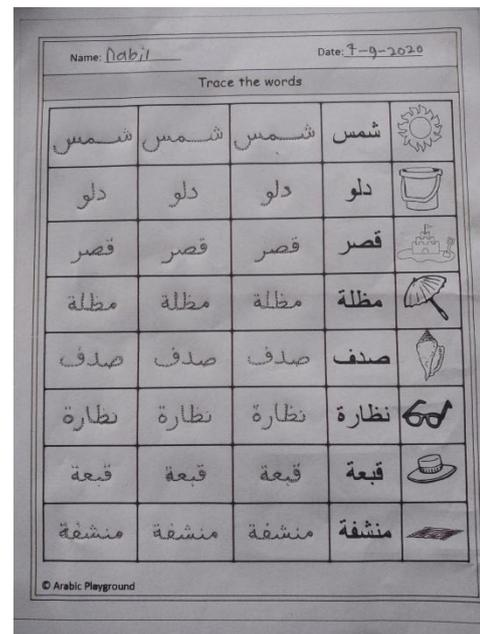 Name: Nabil Date: 7-9-2020
Trace the words
شمس شمس شمس شمس
دلو دلو دلو دلو
قصر قصر قصر قصر
مظلة مظلة مظلة مظلة
صدف صدف صدف صدف
نظارة نظارة نظارة نظارة
قبعة قبعة قبعة قبعة
منشفة منشفة منشفة منشفة
© Arabic Playground